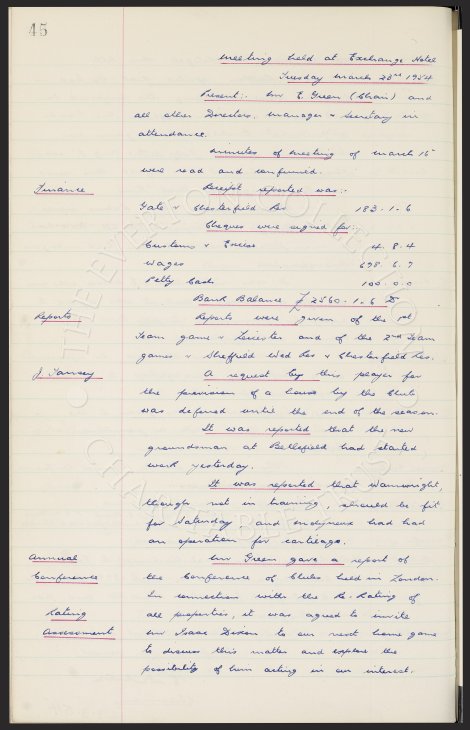 45
Meeting held at Exchange Hotel
Tuesday March 23rd 1954
Present:. Mr E. Green (Chair) and
all other Directors, Manager & Secretary in
attendance.
Minutes of Meeting of March 16
were read and confirmed.
Finance Receipt reported was:-
Gate v Chesterfield Res 183.1.6
Cheques were signed for:-
Customs & Excise 4.8.4
Wages 698.6.7
Petty Cash 100.0.0
Bank Balance £2560.1.6 D
Reports Reports were given of the 1st
Team game v Leicester and of the 2nd Team
games v Sheffield Wed Res & Chesterfield Res.
J. Tansey A request by this player for
the provision of a house by the Club
was deferred until the end of the season.
It was reported that the new
groundsman at Bellefield had started
work yesterday.
It was reported that Wainwright,
though not in training, should be fit
for Saturday and Molyneux had had
an operation for cartilage.
Annual Mr Green gave a report of
Conference the Conference of Clubs held in London.
In connection with the Re-Rating of
Rating all properties, it was agreed to invite
Assessment Mr Isaac Dixon to our next home game
to discuss this matter and explore the
possibility of him acting in our interest.
THE EVERTON COLLECTION
CHARITABLE TRUST